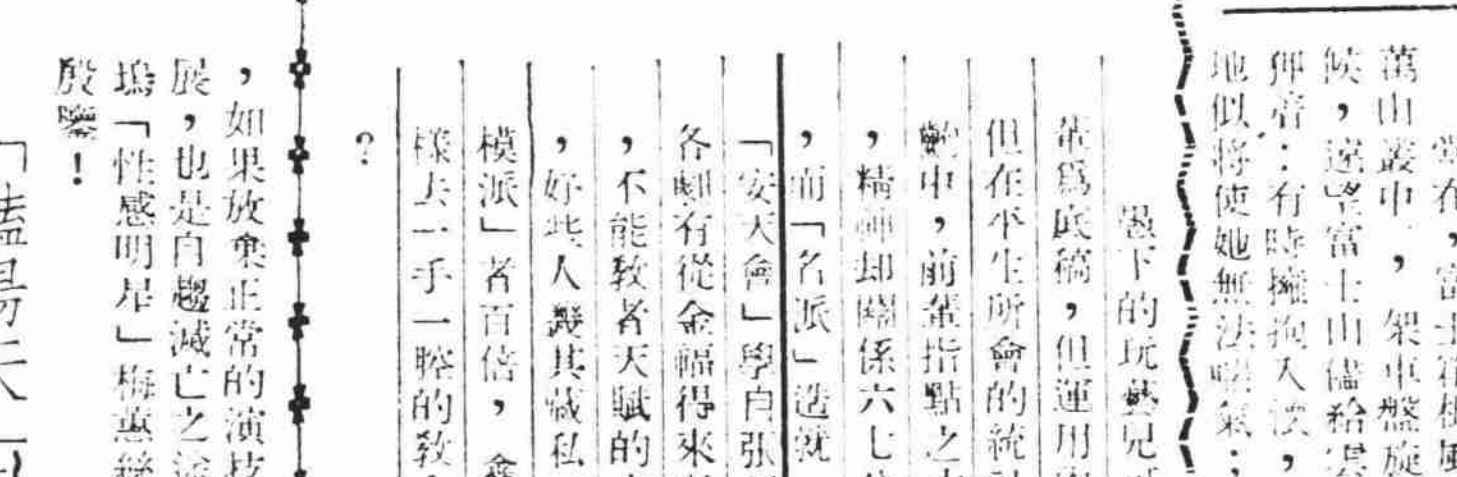 常在，富士箱根風
萬山叢中，架車盤旋
候，遠望富士山儘給雲
抑着：有時擁抱入懷，
地似將使她無法喘氣；
愚下的玩藝兒
輩爲底稿，但運用
但在平生所會的統
齣中，前輩指點之
，精神却關係六七
，而「名派」造就
「安天會」學自張
各齣有從金福得來
，不能教者天賦的
，好些人譏其藏私
模派」者百倍，
樣去一手一腔的教
？
，如果放棄正常的演技
展，也是自趨滅亡之途
塢「性感明星」梅蕙絲
殷鑒！